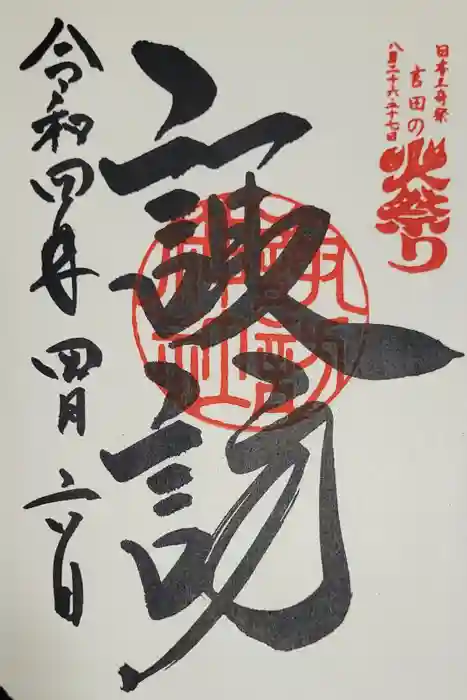 日本三奇祭
吉田の火祭り
八月二十六・二十七日
諏訪
令和四年 四月 六日